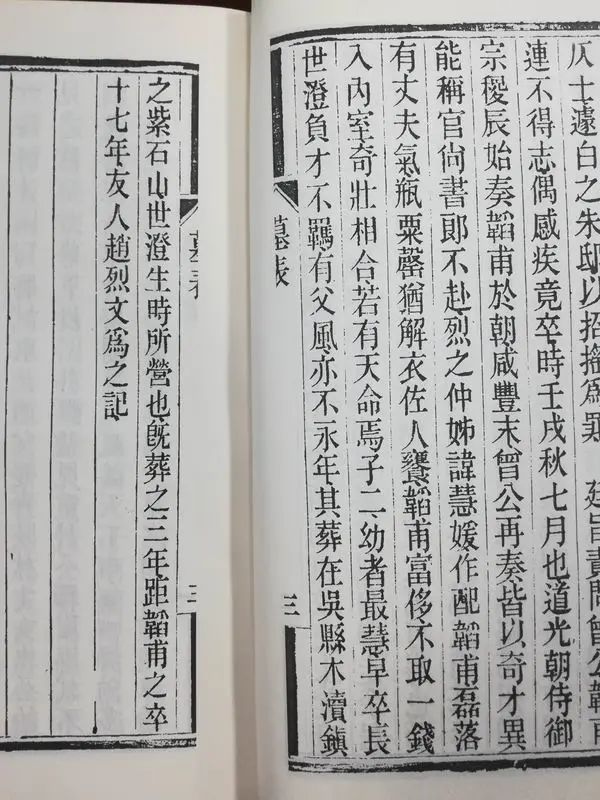 仄士遽白之朱邸以招搖爲罪　廷旨責問曾公韜甫
連不得志偶感疾竟卒時壬戌秋七月也道光朝侍御
宗稷辰始奏韜甫於朝咸豐末曾公再奏皆以奇才異
能稱官尚書郎不赴烈之仲姊諱慧媛作配韜甫磊落
有丈夫氣瓶粟罄猶解衣佐人饔韜甫富侈不取一錢
入內室奇壯相合若有天命焉子二幼者最慧早卒長
世澄負才不羈有父風亦不永年其葬在吳縣木瀆鎮
墓表
三
墓表
三
之紫石山世澄生時所營也旣葬之三年距韜甫之卒
十七年友人趙烈文爲之記